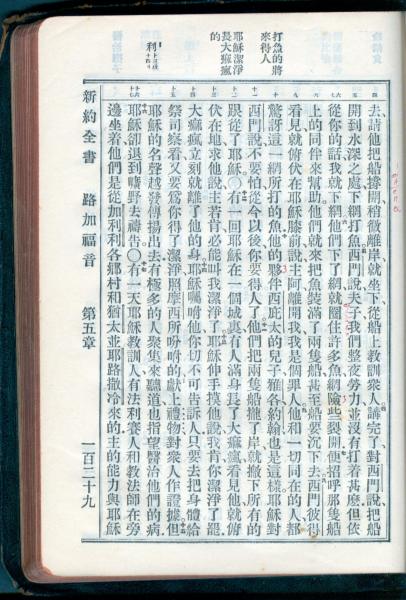 去請他把船撐開稍微離岸就坐下從船上教訓衆人講完了對西門說把船
開到水深之處下網打魚西門說夫子我們整夜勞力並沒有打着甚麼但依
從你的話我就下網他們下了網就圈住許多魚網險些裂開便招呼那隻船
上的同伴來幫助他們就來把魚裝滿了兩隻船甚至船要沉下去西門彼得
看見就俯伏在耶穌膝前說主阿離開我我是個罪人他和一切同在的人都
驚訝這一網所打的魚他的夥伴西庇太的兒子雅各約翰也是這樣耶穌對
西門說不要怕從今以後你要得人了他們把兩隻船攏了岸就撇下所有的
跟從了耶穌〇有一回耶穌在一個城裏有人滿身長了大痲瘋看見他就俯
伏在地求他說主若肯必能叫我潔淨了耶穌伸手摸他說我肯你潔淨了罷
大痲瘋立刻就離了他的身耶穌囑咐他你切不可告訴人只要去把身體給
祭司察看又要爲你得了潔淨照摩西所吩咐的獻上禮物對衆人作證據但
耶穌的名聲越發傳揚出去有極多的人聚集來聽道也指望醫治他們的病
耶穌卻退到曠野去禱告〇有一天耶穌教訓人有法利賽人和教法師在旁
邊坐着他們是從加利利各鄉村和猶太並耶路撒冷來的主的能力與耶穌
打魚的將
來得人
耶穌潔淨
長大痲瘋
的
利
新約全書 路加福音 第五章 一百二十九